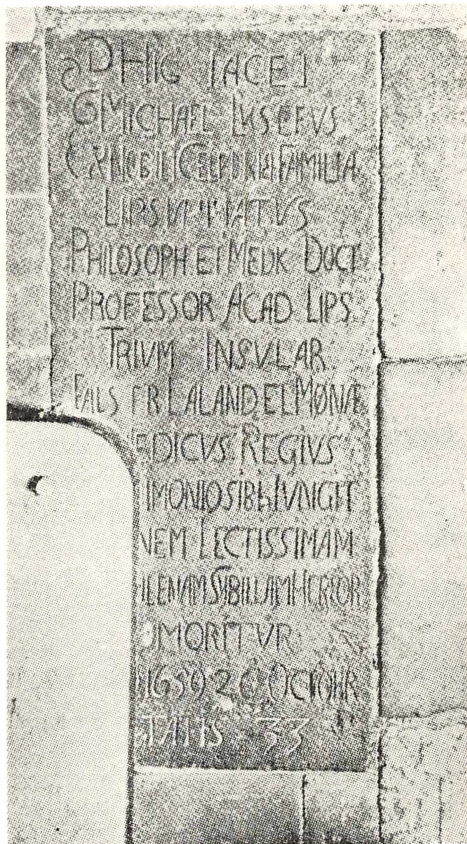 HIC IACET
MICHAEL LYSCEVS
EX NOBILI FAMILIA
LIPS
PHILOSOPH ET MEDIC DOCT
PROFESSOR ACAD LIPS
TRIUM INSULAR
FALS FR LALAND ET MØNÆ
EDICUS REGIUS
IMONIO SIBI IUNGIT
NEM LECTISSIMAM
ILENAM SYBILLAM
MORITUR
1659 26 OCTOBR
TATIS 33